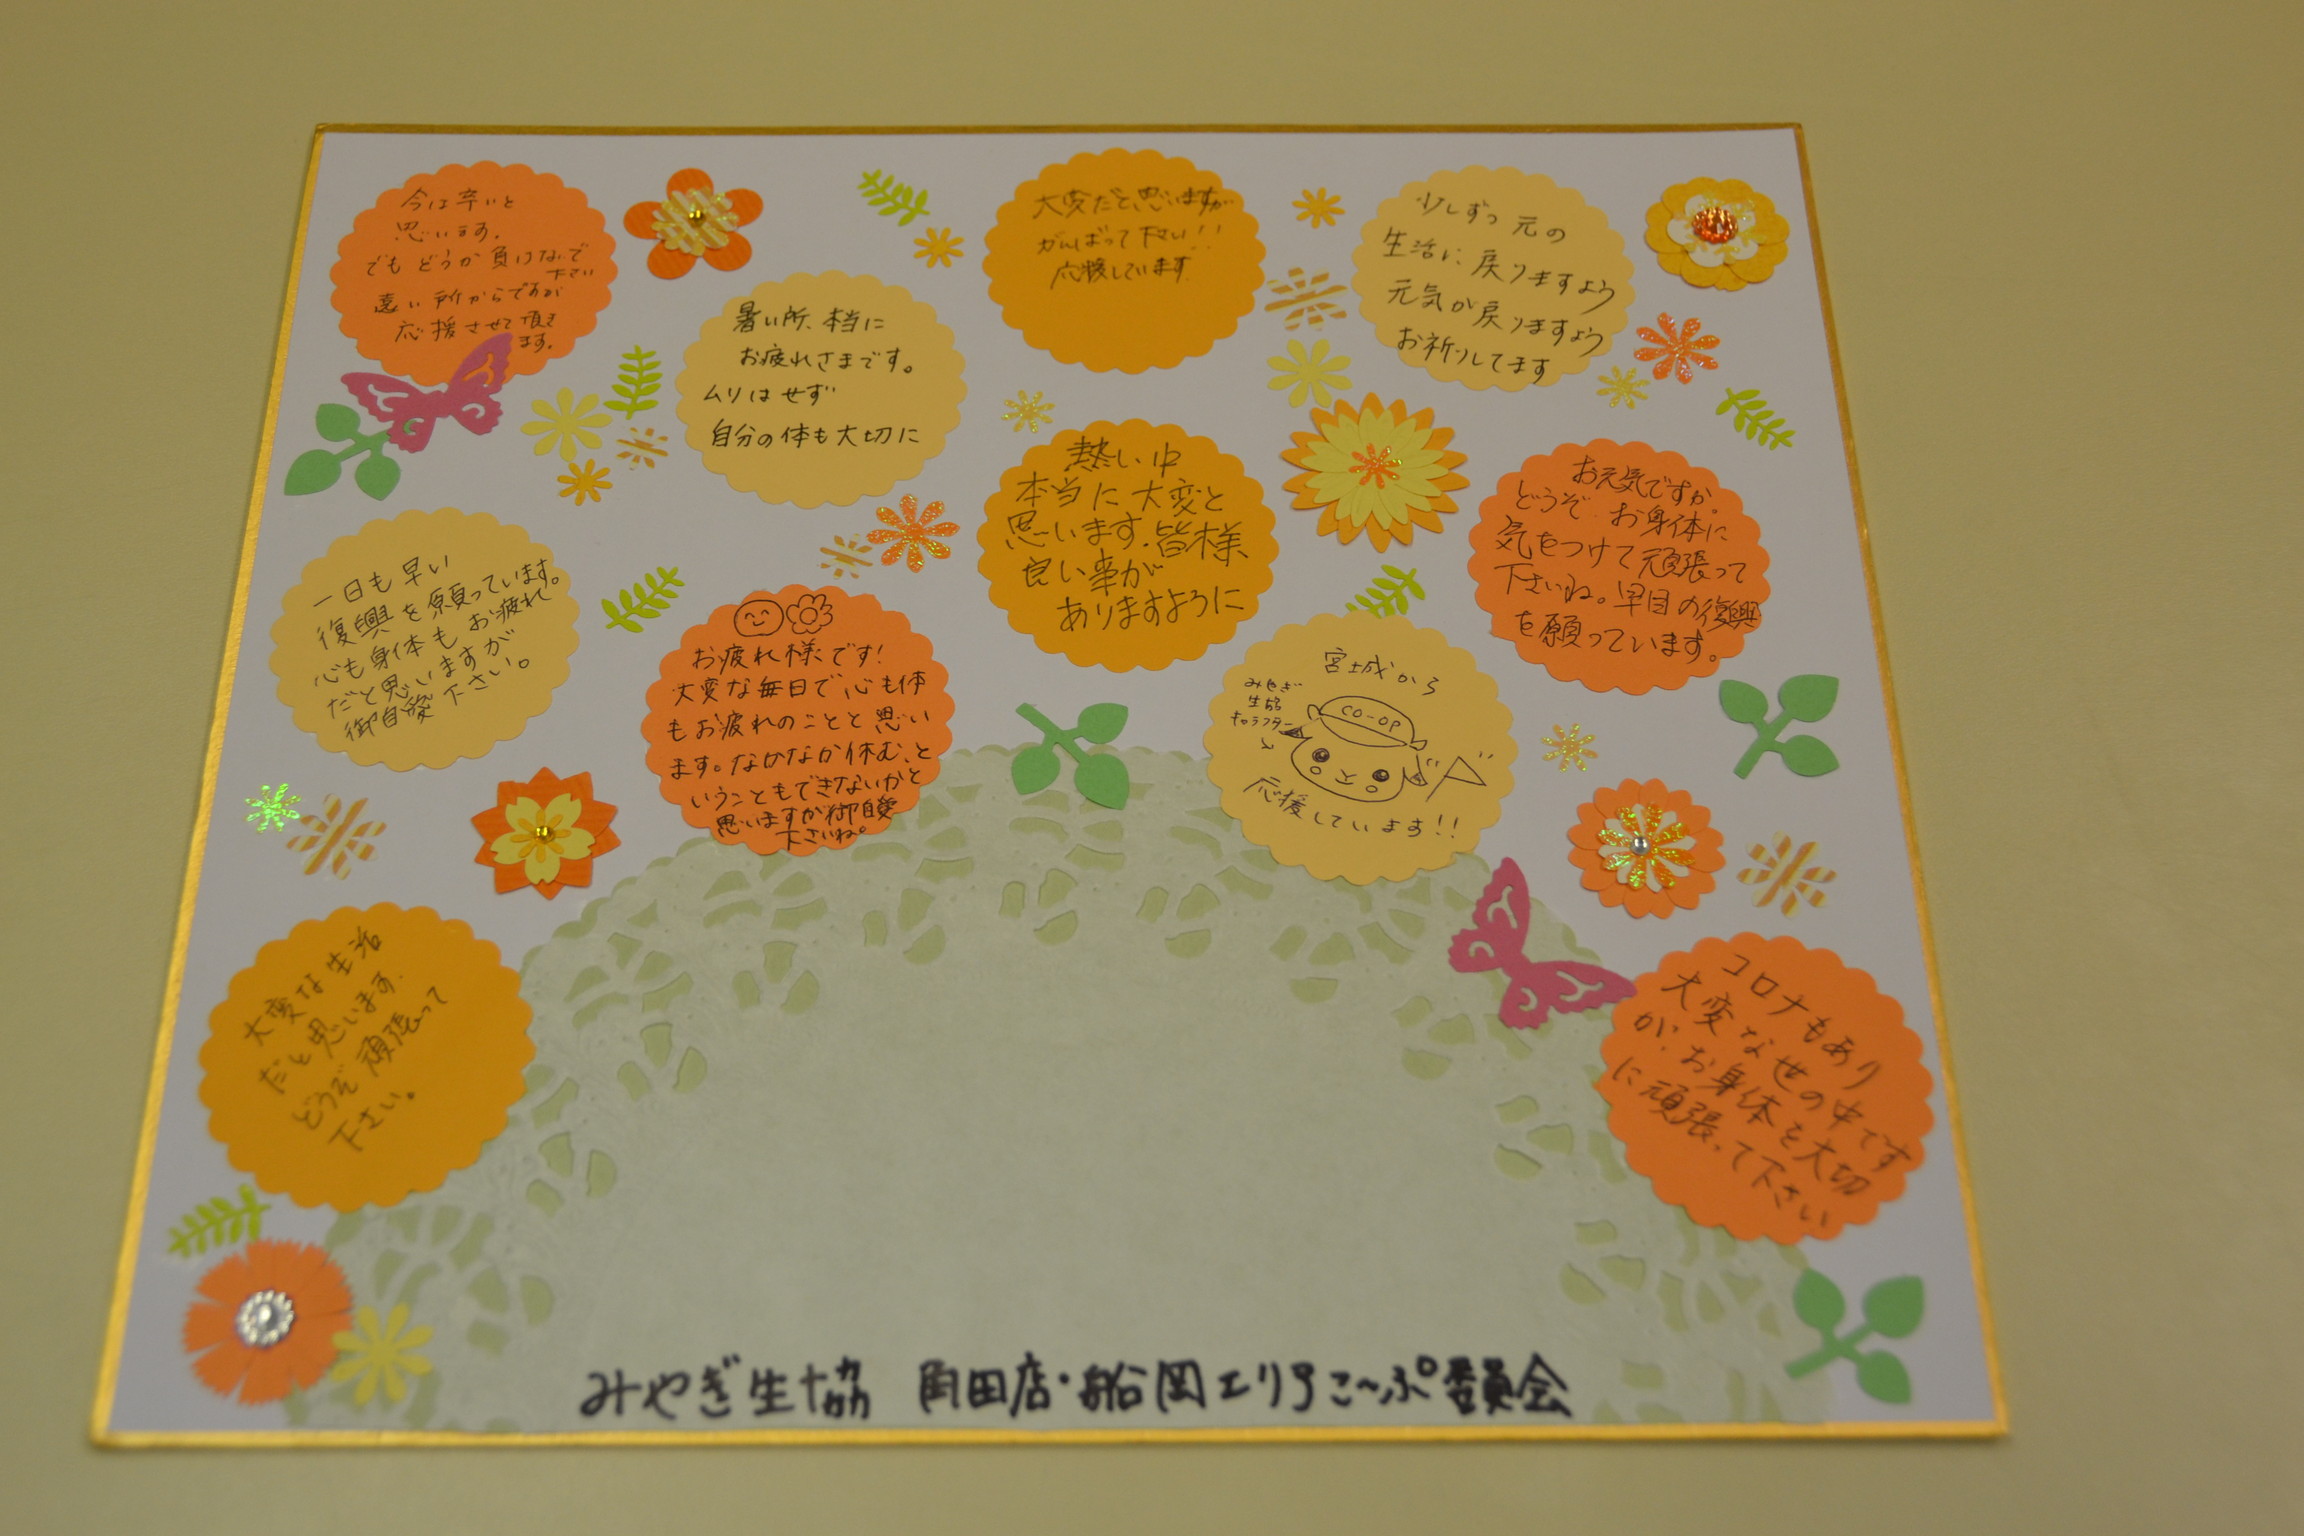 今は辛いと
思います。
でもどうか負けないで
下さい
遠い所からですが
応援させて頂き
ます。
暑い所、本当に
お疲れさまです。
ムリはせず
自分の体も大切に
大変だと思いますが
がんばって下さい!!
応援しています。
少しずつ元の
生活に戻りますよう
元気が戻りますよう
お祈りしてます
一日も早い
復興を願っています。
心も身体もお疲れ
だと思いますが
御自愛下さい。
お疲れ様です!
大変な毎日で心も体
もお疲れのことと思い
ます。なかなか休む、と
いうこともできないかと
思いますが御自愛
下さいね。
熱い中
本当に大変と
思います。皆様
良い事が
ありますように
宮城から
みやぎ
生協
キャラクター
CO-OP
応援しています!!
お元気ですか。
どうぞ、お身体に
気をつけて頑張って
下さいね。早目の復興
を願っています。
大変な生活
だと思います。
どうぞ頑張って
下さい。
コロナもあり
大変な世の中です
が、お身体を大切
に頑張って下さい
みやぎ生協 角田店・船岡エリアこ〜ぷ委員会